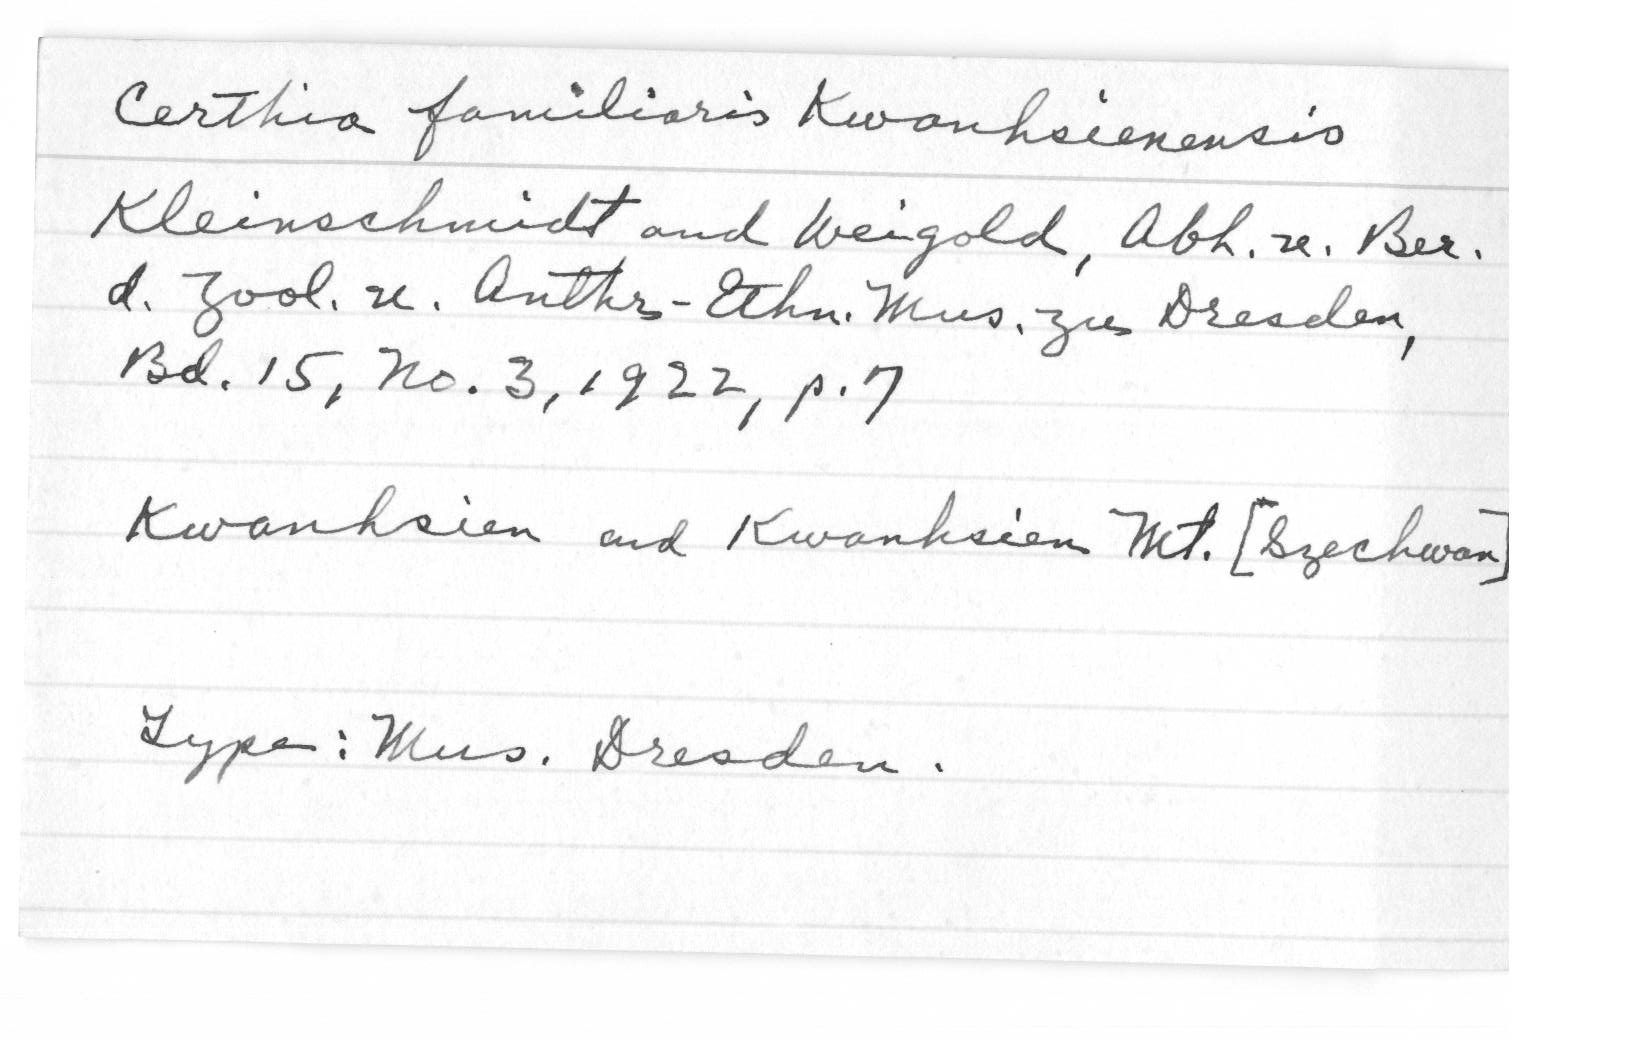 Certhia familiaris Kwanhsienensis
Kleinschmidt and Weigold, Abh. u. Ber.
d. Zool. u. Anthr-Ethn. Mus. zu Dresden,
Bd. 15, No. 3, 1922, p. 7
Kwanhsien and Kwanhsien Mt. [Szechwan]
Type: Mus. Dresden.